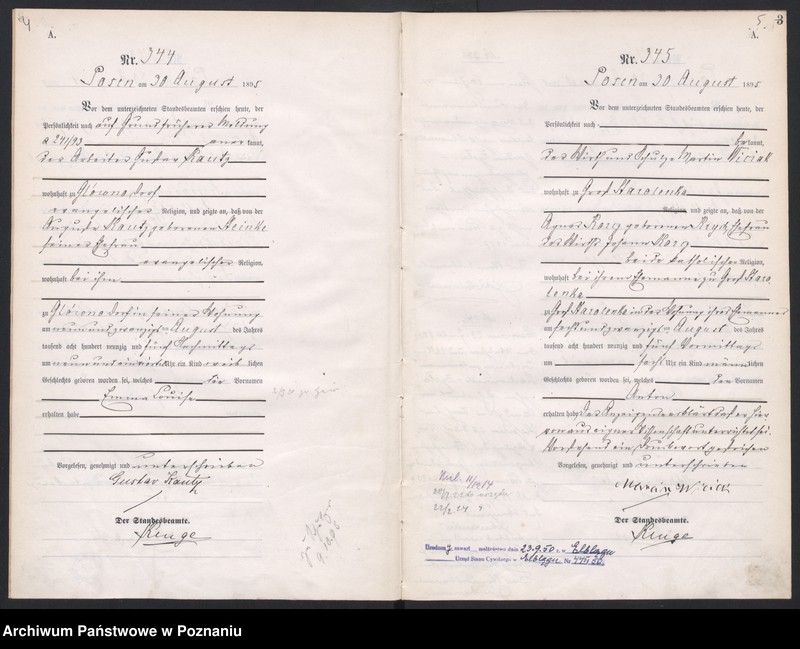 4
A.
Nr. 344
Posen am 30 August 1895
Vor dem unterzeichneten Standesbeamten erschien heute, der
Persönlichkeit nach auf Grund früherer Meldung
anerkannt,
der Arbeiter Gustav Kautz
wohnhaft zu Glówno Dorf
evangelischer Religion, und zeigte an, daß von der
Auguste Kautz geborenen Heinke
seiner Ehefrau
evangelischer Religion,
wohnhaft bei ihm
zu Glówno Dorf in seiner Wohnung
am neunundzwanzigsten August des Jahres
tausend acht hundert neunzig und fünf Nachmittags
um neun und ein viertel Uhr ein Kind weiblichen
Geschlechts geboren worden sei, welches die Vornamen
Emma Louise
erhalten habe
Vorgelesen, genehmigt und unterschrieben
Gustav Kautz
Der Standesbeamte.
Runge
5. 3
A.
Nr. 345
Posen am 30 August 1895
Vor dem unterzeichneten Standesbeamten erschien heute, der
Persönlichkeit nach
bekannt,
der Wirth und Schulze Martin Wiciak
wohnhaft zu Groß Starolenka
Religion, und zeigte an, daß von der
Agnes Karg geborenen Ehefrau
des Wirths Johann Karg
beide katholischer Religion,
wohnhaft bei ihrem Ehemanne zu Groß Staro
lenka
zu Groß Starolenka in der Wohnung ihres Ehemannes
am sechsundzwanzigsten August des Jahres
tausend acht hundert neunzig und fünf Vormittags
um sechs Uhr ein Kind männlichen
Geschlechts geboren worden sei, welches den Vornamen
Anton
erhalten habe. Der Anzeigende erklärt daß er hier
von aus eigener Wissenschaft unterrichtet sei.
Vorstehend ein Druckwort gestrichen
Vorgelesen, genehmigt und unterschrieben
Marcin Wiciak
Der Standesbeamte.
Runge
zawarł małżeństwo dnia 23.9.50 r. w Elblągu
Urząd Stanu Cywilnego w Elblągu Nr
Archiwum Państwowe w Poznaniu